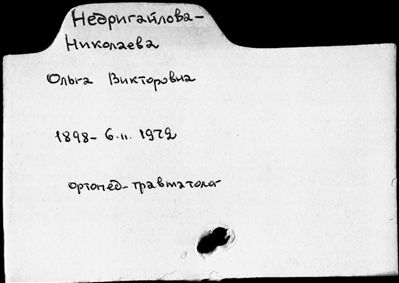 Недригайлова-
Николаева
Ольга Викторовна
1898- 6.II. 1972
ортопед-травматолог